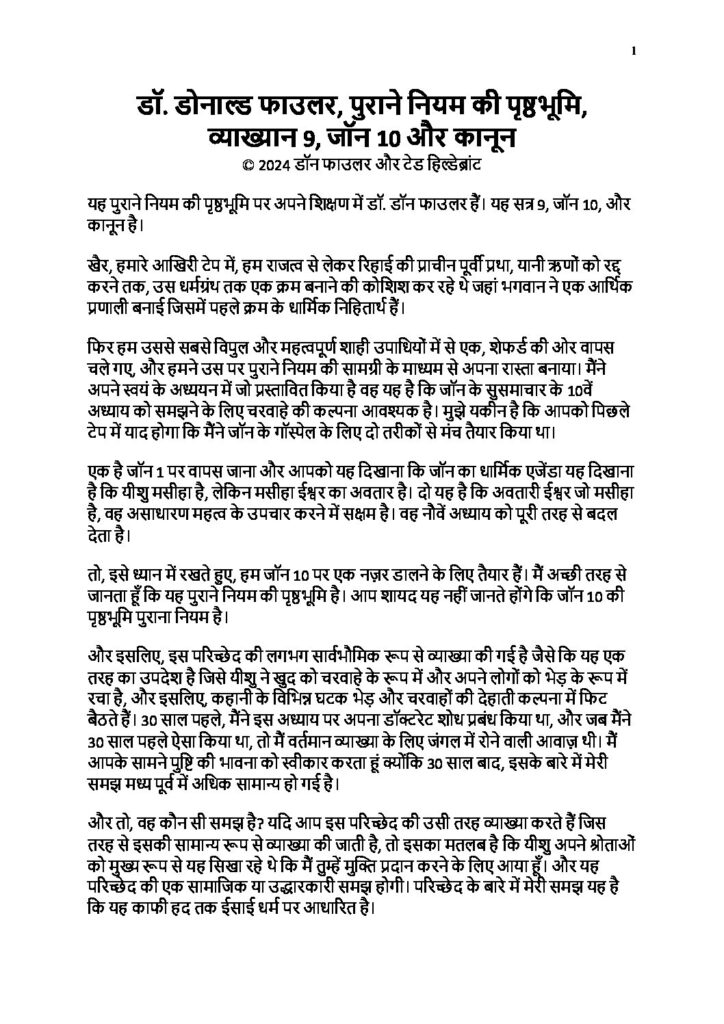 1
डॉ. डोनाल्ड फाउलर, पुराने नियम की पृष्ठभूमि,
व्याख्यान 9, जॉन 10 और कानून
© 2024 डॉन फाउलर और टेड हिल्डेब्रांट
यह पुराने नियम की पृष्ठभूमि पर अपने शिक्षण में डॉ. डॉन फाउलर हैं। यह सत्र 9, जॉन 10, और
कानून है।
खैर, हमारे आखिरी टेप में, हम राजत्व से लेकर रिहाई की प्राचीन पूर्वी प्रथा, यानी ऋणों को रद्द
करने तक, उस धर्मग्रंथ तक एक क्रम बनाने की कोशिश कर रहे थे जहां भगवान ने एक आर्थिक
प्रणाली बनाई जिसमें पहले क्रम के धार्मिक निहितार्थ हैं।
फिर हम उससे सबसे विपुल और महत्वपूर्ण शाही उपाधियों में से एक, शेफर्ड की ओर वापस
चले गए, और हमने उस पर पुराने नियम की सामग्री के माध्यम से अपना रास्ता बनाया। मैंने
अपने स्वयं के अध्ययन में जो प्रस्तावित किया है वह यह है कि जॉन के सुसमाचार के 10वें
अध्याय को समझने के लिए चरवाहे की कल्पना आवश्यक है। मुझे यकीन है कि आपको पिछले
टेप में याद होगा कि मैंने जॉन के गॉस्पेल के लिए दो तरीकों से मंच तैयार किया था।
एक है जॉन 1 पर वापस जाना और आपको यह दिखाना कि जॉन का धार्मिक एजेंडा यह दिखाना
है कि यीशु मसीहा है, लेकिन मसीहा ईश्वर का अवतार है। दो यह है कि अवतारी ईश्वर जो मसीहा
है, वह असाधारण महत्व के उपचार करने में सक्षम है। वह नौवें अध्याय को पूरी तरह से बदल
देता है।
तो, इसे ध्यान में रखते हुए, हम जॉन 10 पर एक नज़र डालने के लिए तैयार हैं। मैं अच्छी तरह से
जानता हूँ कि यह पुराने नियम की पृष्ठभूमि है। आप शायद यह नहीं जानते होंगे कि जॉन 10 की
पृष्ठभूमि पुराना नियम है।
और इसलिए, इस परिच्छेद की लगभग सार्वभौमिक रूप से व्याख्या की गई है जैसे कि यह एक
तरह का उपदेश है जिसे यीशु ने खुद को चरवाहे के रूप में और अपने लोगों को भेड़ के रूप में
रचा है, और इसलिए, कहानी के विभिन्न घटक भेड़ और चरवाहों की देहाती कल्पना में फिट
बैठते हैं। 30 साल पहले, मैंने इस अध्याय पर अपना डॉक्टरेट शोध प्रबंध किया था, और जब मैंने
30 साल पहले ऐसा किया था, तो मैं वर्तमान व्याख्या के लिए जंगल में रोने वाली आवाज़ थी। मैं
आपके सामने पुष्टि की भावना को स्वीकार करता हूं क्योंकि 30 साल बाद, इसके बारे में मेरी
समझ मध्य पूर्व में अधिक सामान्य हो गई है।
और तो, वह कौन सी समझ है? यदि आप इस परिच्छेद की उसी तरह व्याख्या करते हैं जिस
तरह से इसकी सामान्य रूप से व्याख्या की जाती है, तो इसका मतलब है कि यीशु अपने श्रोताओं
को मुख्य रूप से यह सिखा रहे थे कि मैं तुम्हें मुक्ति प्रदान करने के लिए आया हूँ। और यह
परिच्छेद की एक सामाजिक या उद्धारकारी समझ होगी। परिच्छेद के बारे में मेरी समझ यह है
कि यह काफी हद तक ईसाई धर्म पर आधारित है।